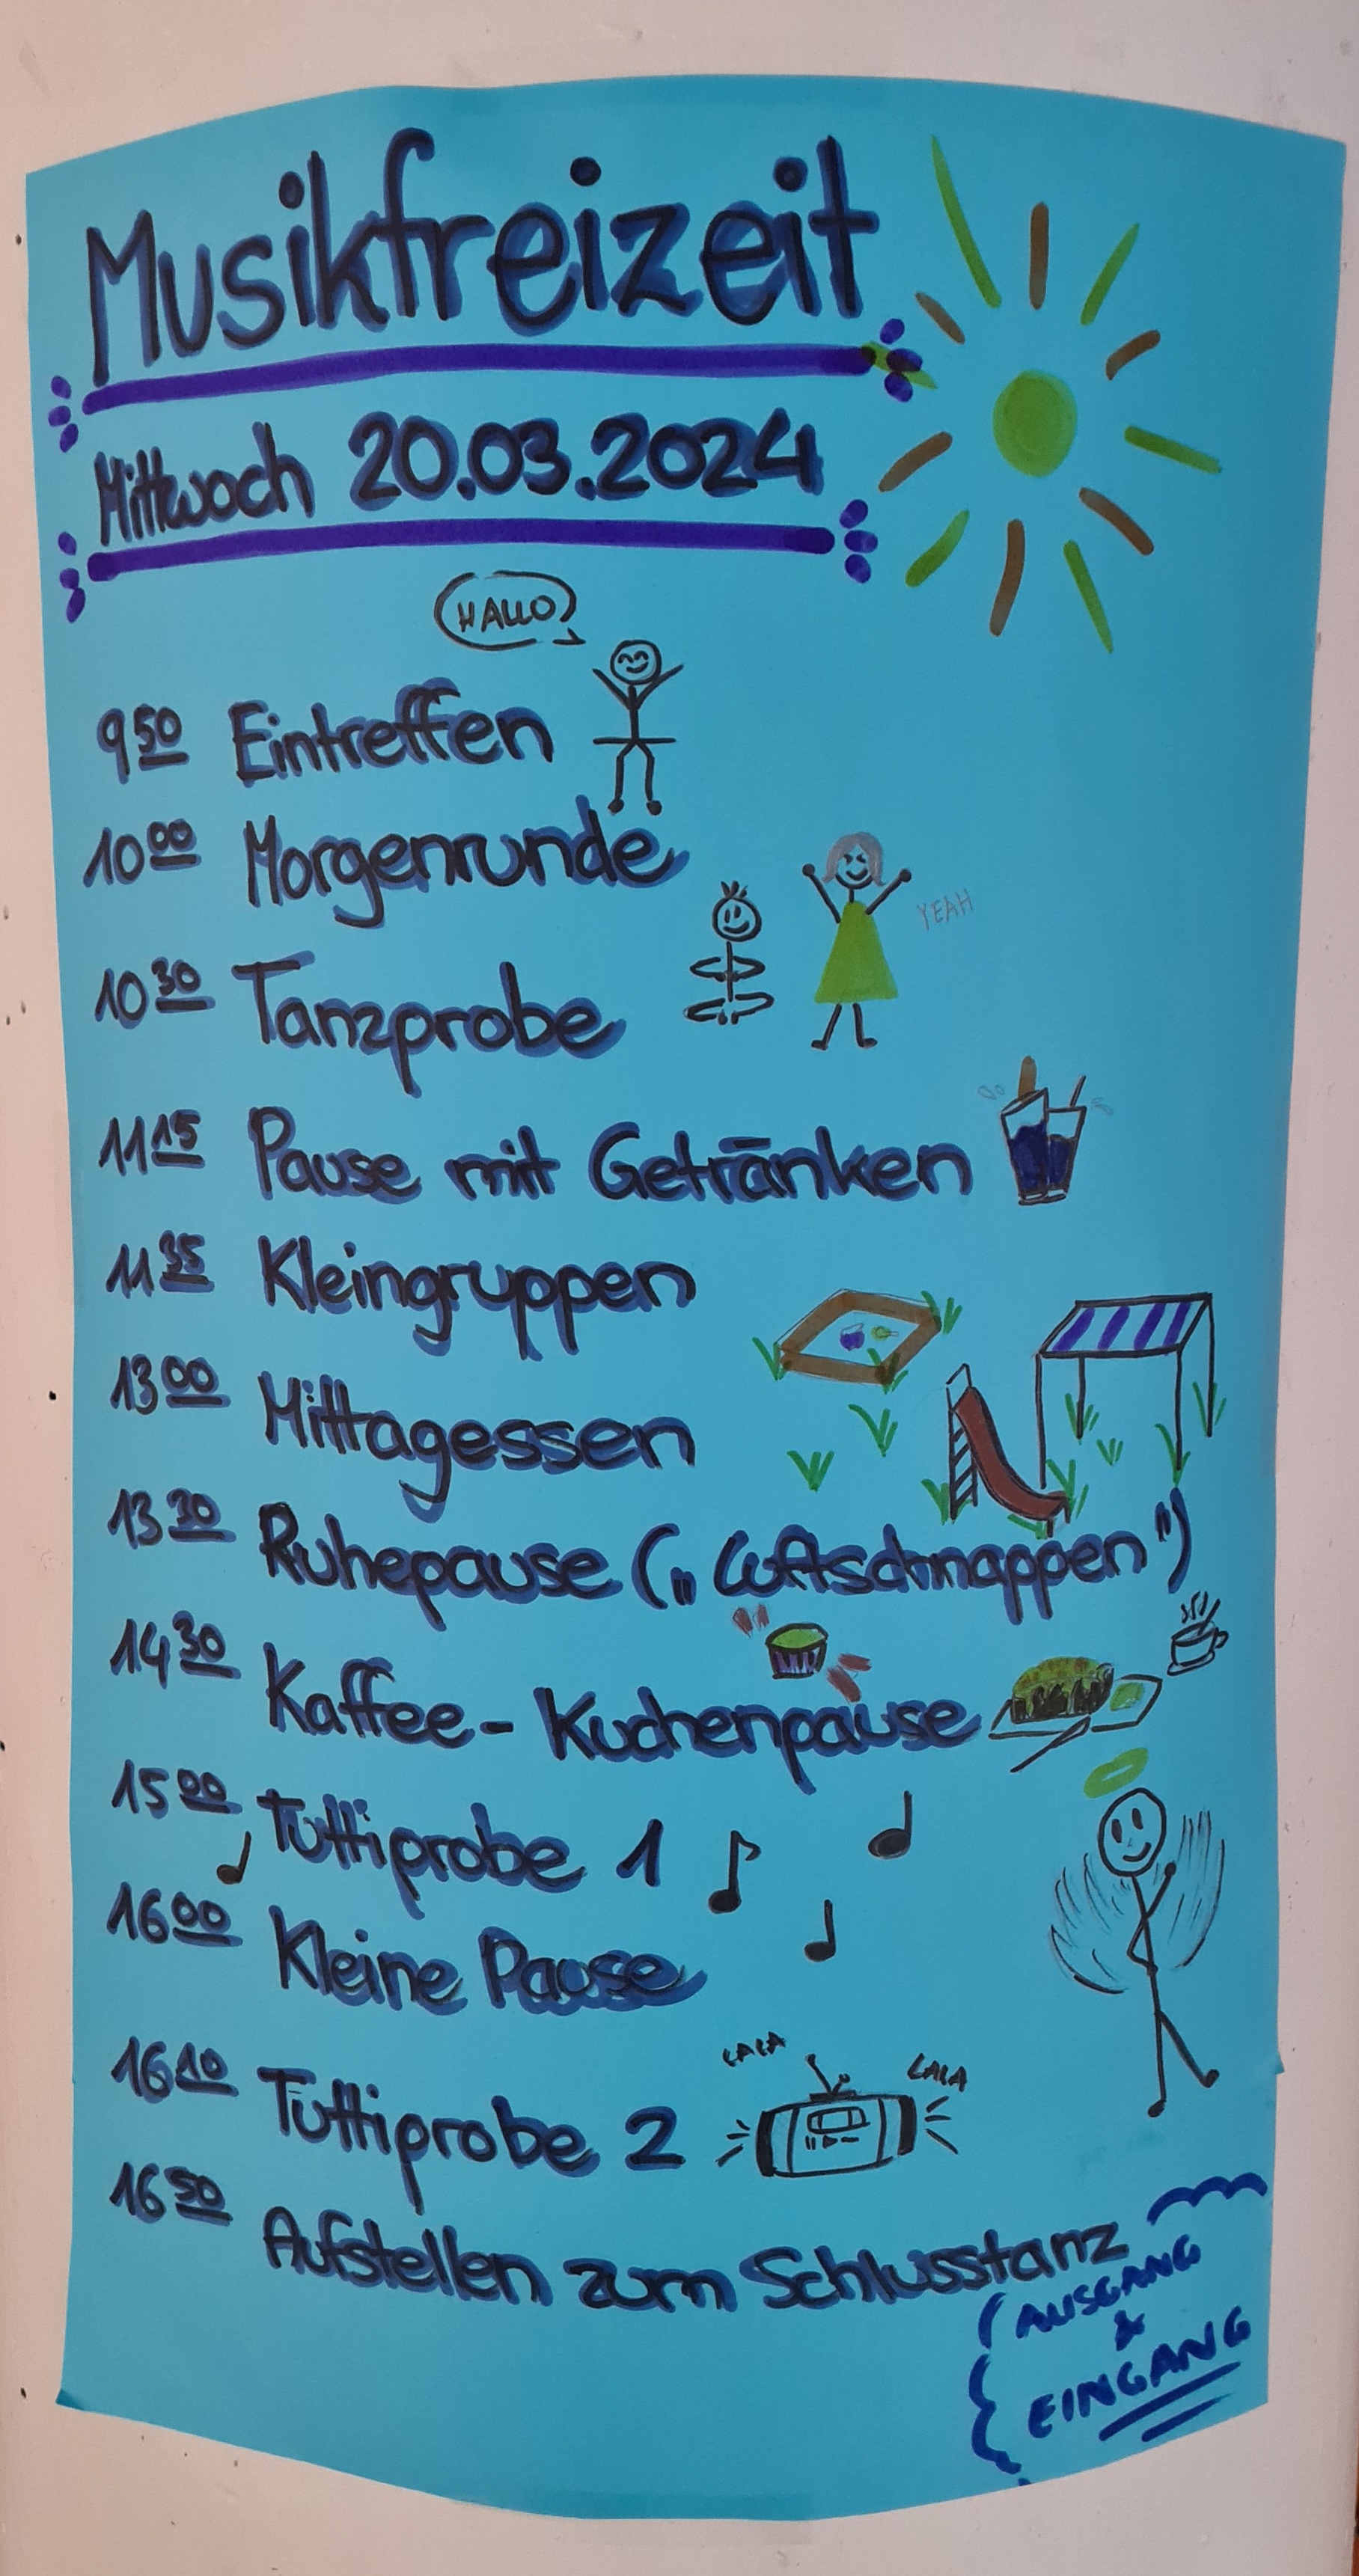 Musikfreizeit
Mittwoch 20.03.2024
HALLO
9 50 Eintreffen
10 00 Morgenrunde
YEAH
10 30 Tanzprobe
11 15 Pause mit Getränken
11 35 Kleingruppen
13 00 Mittagessen
13 30 Ruhepause („Luftschnappen")
14 30 Kaffee-Kuchenpause
15 00 Tuttiprobe 1
16 00 Kleine Pause
LALA LALA
16 10 Tuttiprobe 2
16 50 Aufstellen zum Schlusstanz
AUSGANG
&
EINGANG